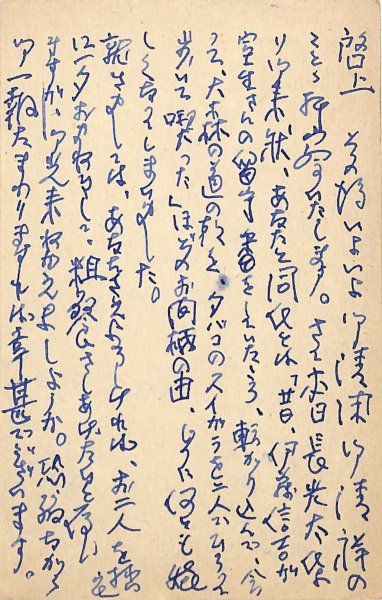 啓上 その後いよいよ御清祥の
ことゝ拝察いたします。さて本日長光太氏よ
り御来状、あなたと同氏とは「日、伊藤信吉が
室生さんの留守番をしていたころ、転がり込んで、会
って、大森の道の乾いたタバコのスイガラを二人でひろって
歩いて喫った」ほどのお間柄の由、じつに何とも嬉
しくなってしまいました。
就きましては、あなたさえよろしければ、お二人を拙宅
に一夕お招ねきして、粗餐さしあげたいと存じ
ますが、御光来ましょうか。恐縮ながら
御一報たまわりますれば幸甚でございます。